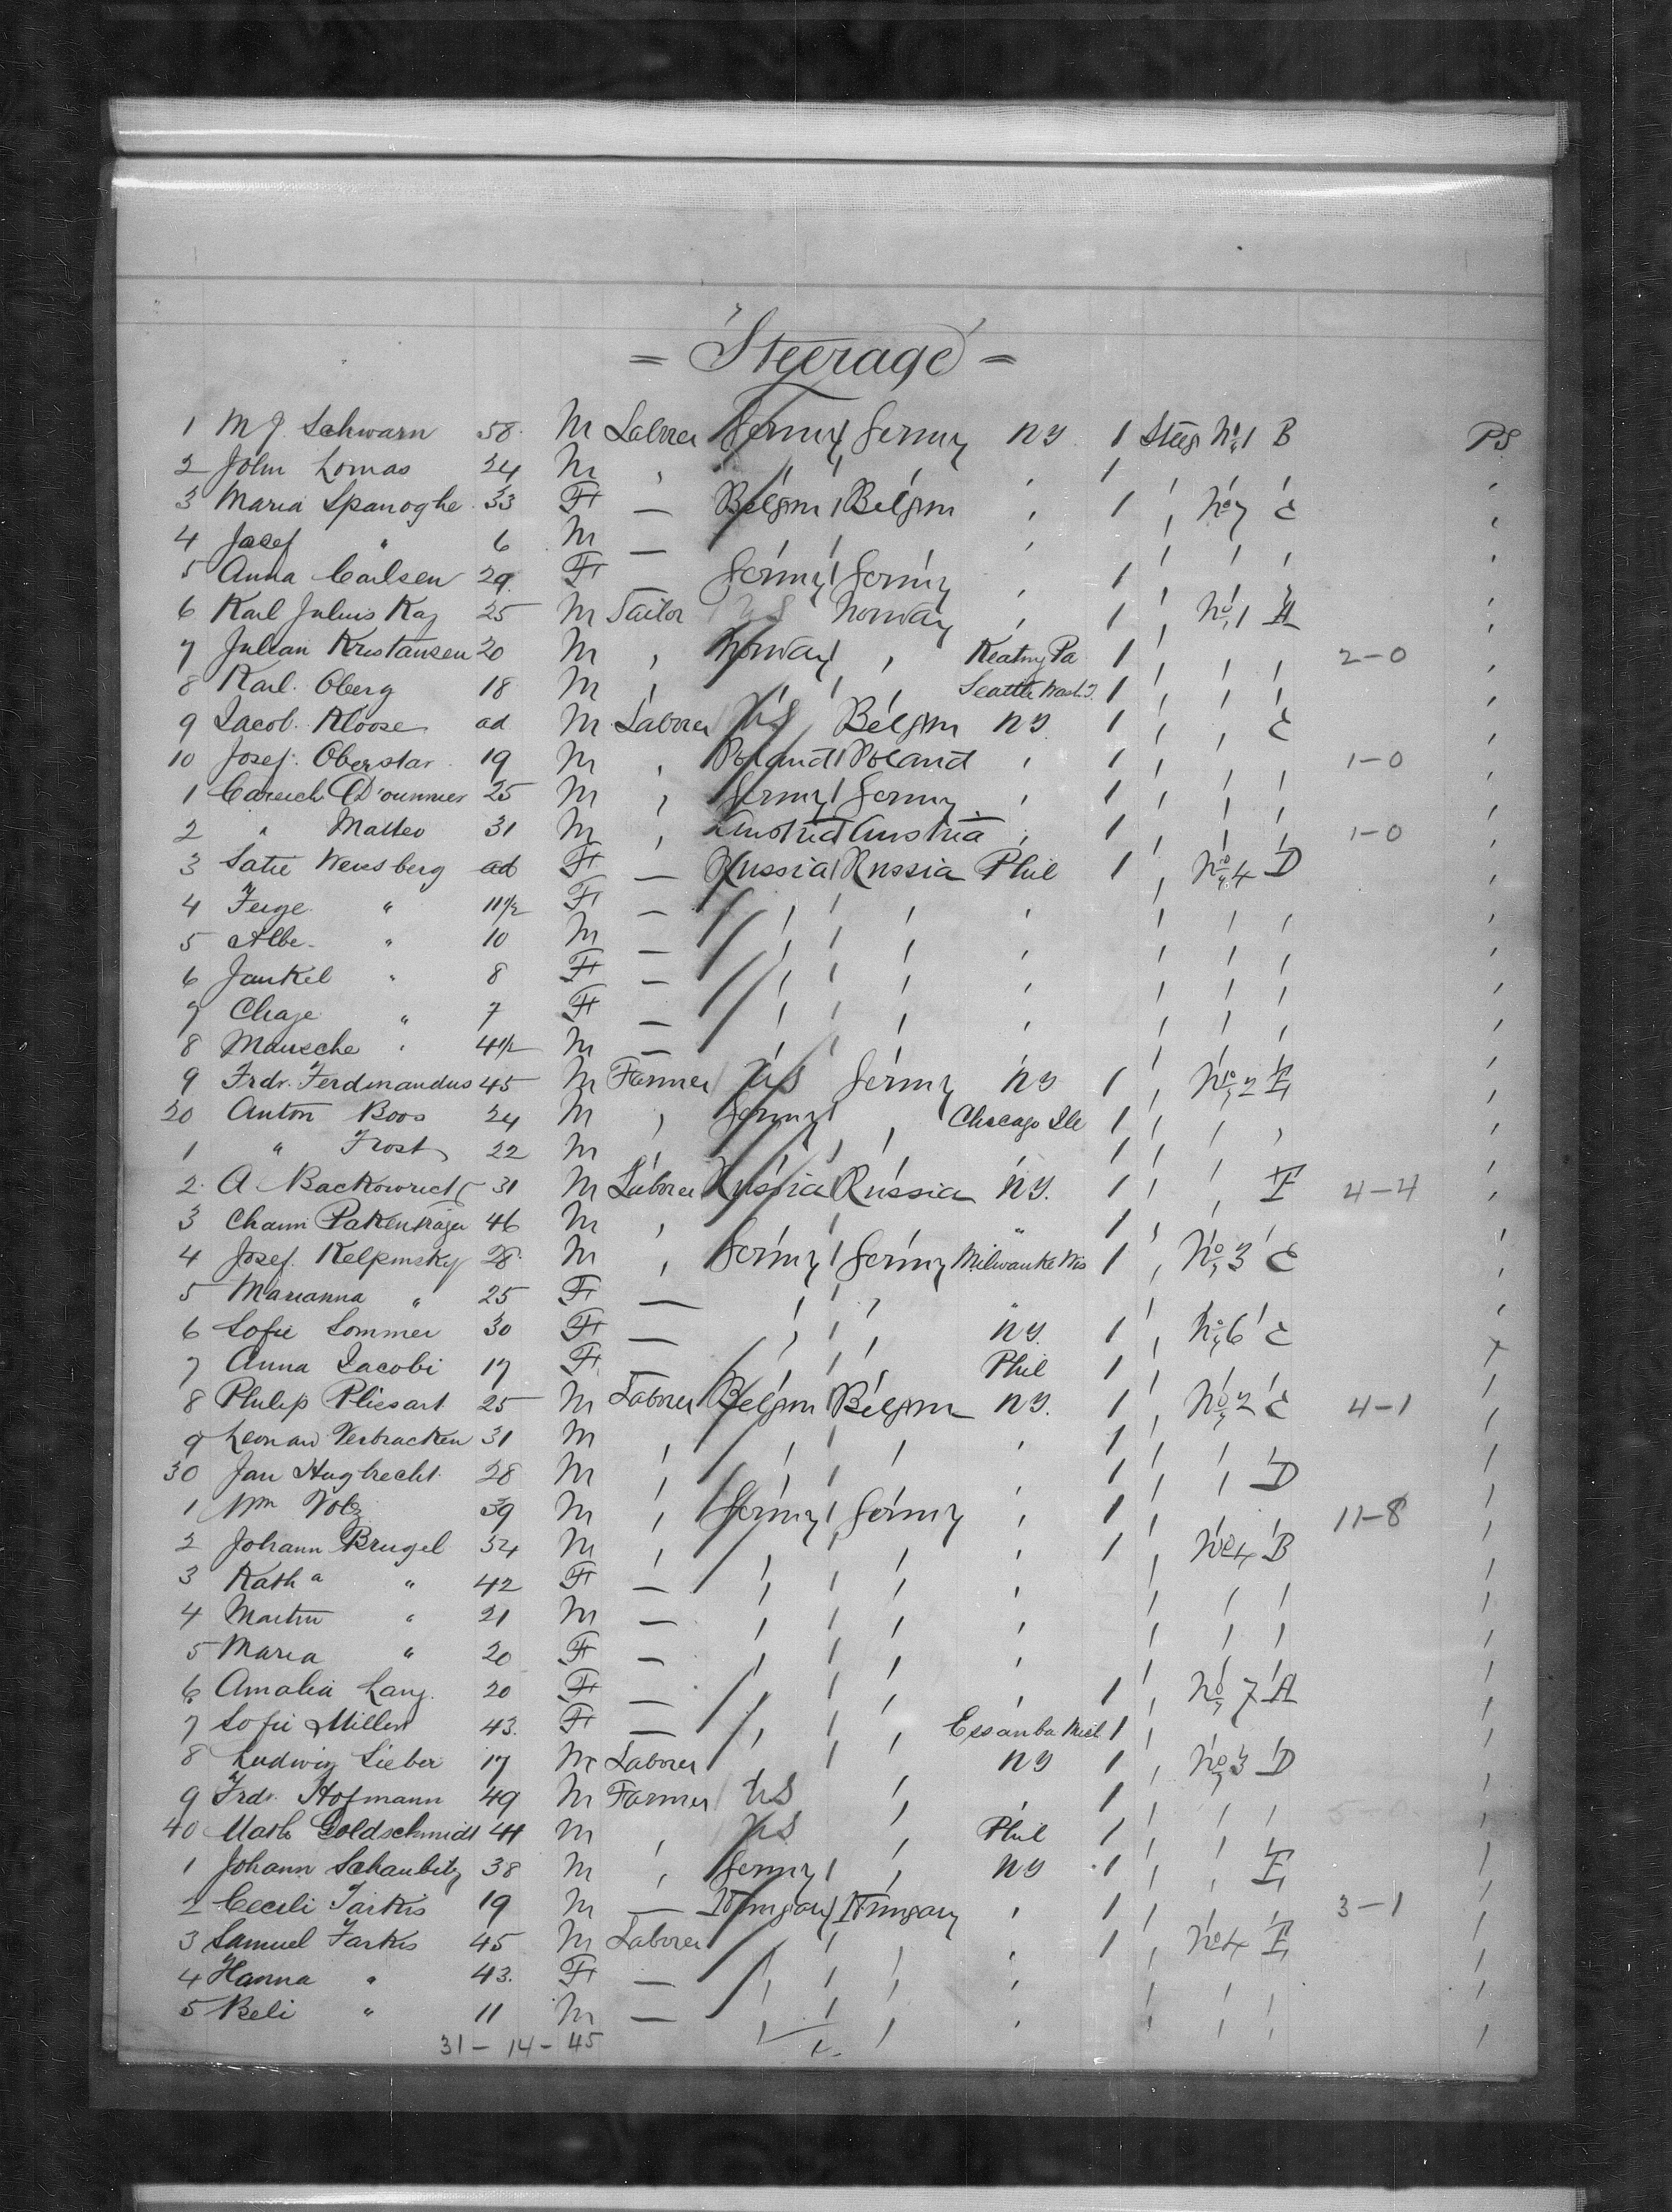 = Steerage =
1 M J. Schwarn 58 M Laborer Germny Germny NY. 1 Steeg No 1 B PS
2 John Lomas 24 M , ' ' , 1 ' ' ' '
3 Maria Spanoghe 33 F — Belgm Belgm , 1 , No 7 C ,
4 Josef " 6 M — ' ' , ' ' ' '
5 Anna Carlsen 29. F — Germny Germny , 1 ' ' ' '
6 Karl Julius Kaz 25 M Tailor US Norway , 1 , No 1 A ,
7 Julian Kristansen 20 M , Norway , Keatny Pa 1 , , , 2-0 ,
8 Karl. Oberg 18 M , ' , Seattle Wash. T. 1 , , , ,
9 Jacob. Kloose ad M Laborer US Belgm NY. 1 , , C ,
10 Josef. Oberstar 19 M , Poland Poland , 1 , , , 1-0 ,
1 25 M , Germny Germny , 1 , , , ,
2 " Matteo 31 M , Austria Austria , 1 , , , 1-0 ,
3 Satie Weissberg ad F — Russia Russia Phil 1 , No 4 D ,
4 Feige " 11 1/2 F — ' ' ' ' ' ' ' '
5 Albe " 10 M — ' ' ' ' ' ' ' '
6 Jankel " 8 F — ' ' ' ' ' ' ' '
7 Chaje " 7 F — ' ' ' ' ' ' ' '
8 Mausche " 4 1/2 M — ' ' ' ' ' ' '
9 Frdr. Ferdinandus 45 M Farmer US Germny NY 1 , No 2 E ,
20 Anton Boos 24 M , Germny , Chicago Ill 1 , , , ,
1 " Frost 22 M , ' ' ' 1 ' ' ' '
2. A 31 M Laborer Russia Russia NY. 1 ' , F 4-4 ,
3 Chaim Pakentrager 46 M , ' ' " 1 ' ' ' '
4 Josef. Kelpinsky 28. M , Germny Germny Milwauke Wis 1 , No 3 C ,
5 Marianna " 25 F — ' ' " ' ' ' '
6 Sofie Sommer 30 F — ' ' NY. 1 , No 6 C
7 Anna Jacobi 17 F — ' ' Phil 1 ' ' ' '
8 Philip Pliesart 25 M Laborer Belgm Belgm NY. 1 , No 2 C 4-1 ,
9 Leonard Verbracken 31 M , ' ' , 1 ' ' ' '
30 Jan Hugbrecht 28 M , ' ' , 1 , , D ,
1 Wm Volz 39 M , Germny Germny , 1 , , , 11-8 ,
2 Johann Brugel 54 M , ' ' , 1 , No 4 B ,
3 Kath a " 42 F — ' ' ' ' ' ' '
4 Martin " 21 M — ' ' ' ' ' ' '
5 Maria " 20 F — ' ' ' ' ' ' '
6 Amalia Lang. 20 F — ' ' , 1 , No 7 A ,
7 Sofie Miller 43. F — ' , Essanba Mich 1 ' ' ' '
8 Ludwig Lieber 17 M Laborer ' ' NY 1 , No 3 D ,
9 Frdr. Hofmann 49 M Farmer US , , 1 ' ' ' '
40 Math Goldschmidt 41 M , US , Phil 1 ' ' ' '
1 Johann Schaubitz 38 M , Germny , NY 1 , , E ,
2 Cecili Farkis 19 M — Hungary Hungary , 1 , , , 3-1 ,
3 Samuel Farkis 45 M Laborer ' ' , 1 , No 4 E ,
4 Hanna " 43. F — ' ' ' ' ' ' '
5 Beli " 11 M — ' ' ' ' ' ' '
31 - 14 - 45